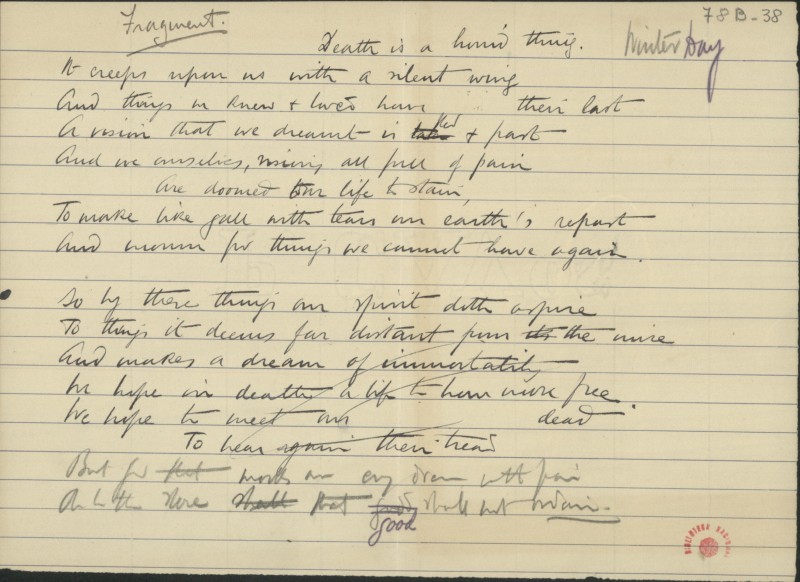 78B-38
Fragment.
Death is a horrid thing. Winter Day
It creeps upon us with a silent wing
And things we knew & loved have their last
A vision that we dreamt is fled & past
And we ourselves, all full of pain
Are doomed our life to stain,
To make like gall with tears our earth's repast
And mourn for things we cannot have again.
So by these things our spirit doth aspire
To things it deems far distant from its the mire
And makes a dream of immortality
We hope in death a life to have more free.
We hope to meet our dead
To hear again their tread
But for that our dream with pain
the shore shall that shall not
good
BIBLIOTECA NACIONAL